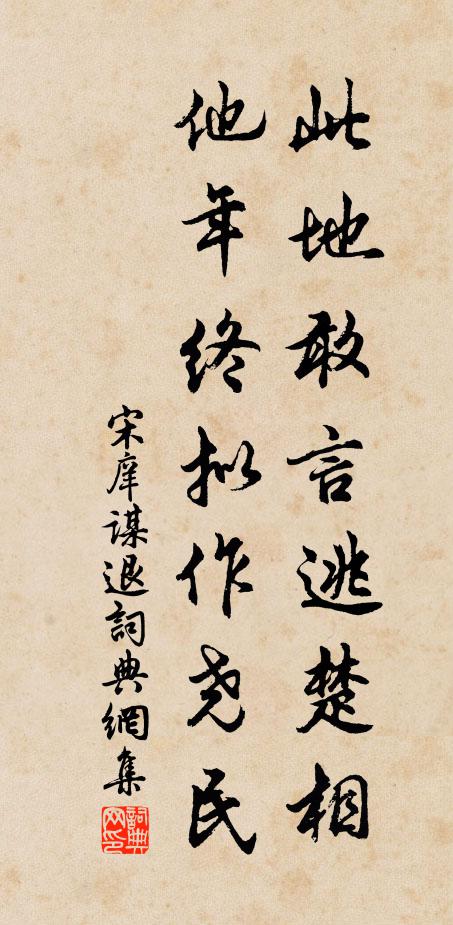 此地敢言逃楚相
他年终拟作尧民
宋庠謀退詞典網集
詞典
网印